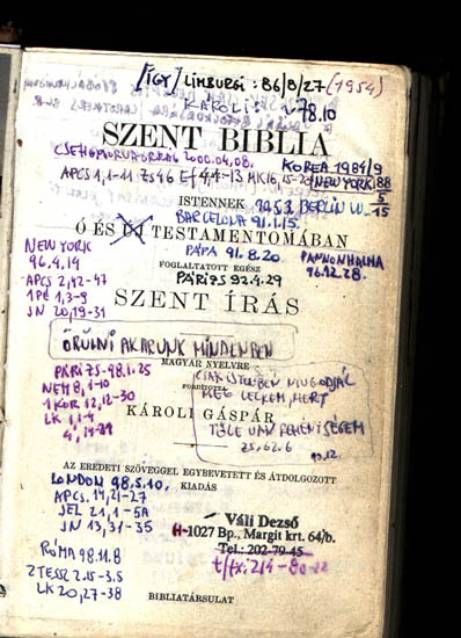 [IGY] LIMBURGI : 86/8/27 (1954)
KÁROLI : 78.10
SZENT BIBLIA
2000.04,08.
KOREA 1984/9
APCS 1,1-11 ZS 46 Ef 4,4-13 MK 16,15-20 NEW YORK 88
5
15
ISTENNEK 1953. BERLIN W.
BARCELONA 91.1.15.
Ó ÉS ÚJ TESTAMENTOMÁBAN
PÁPA 91.8.20
PANNONHALMA
96.12.28.
FOGLALTATOTT EGÉSZ
PÁRIZS 92.4.29
NEW YORK
96.4.14
APCS 2,42-47
1PÉ 1,3-9
JN 20,19-31
SZENT ÍRÁS
ÖRÜLNI AKARUNK MINDENBEN
MAGYAR NYELVRE
FORDÍTOTTA
PÁRIZS-98.1.25
NEH 8,1-10
1KOR 12,12-30
LK 1,1-4
4,14-21
CSAK ISTENBEN NYUGODJÁL
MEG LELKEM, MERT
KÁROLI GÁSPÁR
TŐLE VAN REMÉNYSÉGEM
ZS. 62.6
AZ EREDETI SZÖVEGGEL EGYBEVETETT ÉS ÁTDOLGOZOTT
KIADÁS
LONDON 98.5.10.
APCS. 14,21-27
JEL 21,1-5A
JN 13,31-35
Váli Dezső
H-1027 Bp., Margit krt. 64/b.
Tel.: 202-79-45
t/fx: 214-80-22
RÓMA 98.11.8
2TESSZ 2.15-3.5
LK 20,27-38
BIBLIATÁRSULAT